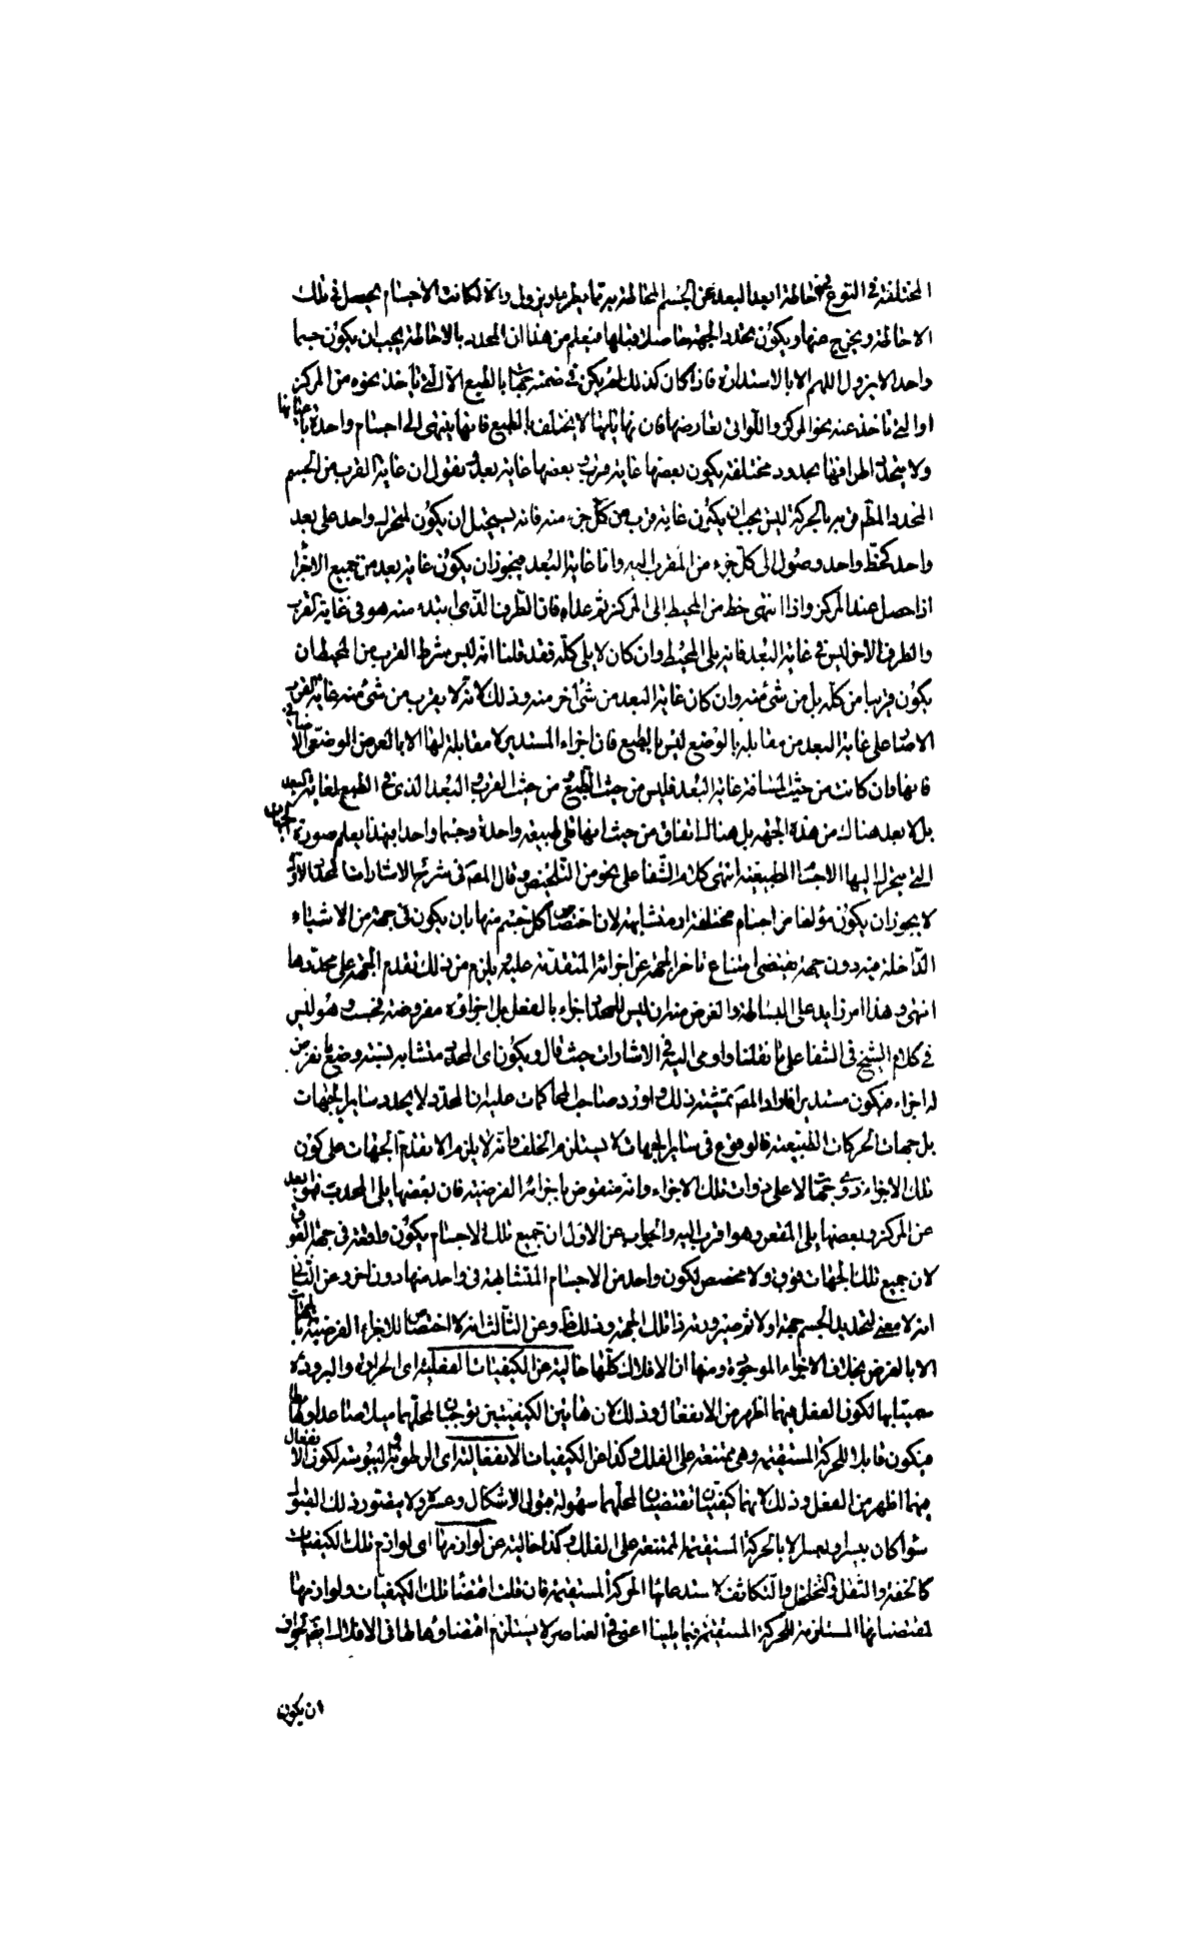 المختلفة فى النوع فهو احاطة ابعد البعد عن الجسم المحاط به مما يطرء ويزول والا لكانت الاجسام يحصل فى تلك
الاحاطة ويخرج عنها ويكون تحدد الجهة حاصلا قبلها فيعلم من هذا ان المحدد بالاحاطة يجب ان يكون جسما
واحدا لا يزول اللهم الا بالاستدارة فاذا كان كذلك لم يكن فى ضمنه جهات بالطبع الا التى تاخذ نحوه من المركز
او التى تاخذ عنه نحو المركز واللواتى تعارضها فان نهاياتها لا يختلف بالطبع فانها ينتهى الى اجسام واحدة
ولا يتحدد اطرافها بحدود مختلفة يكون بعضها غاية قرب وبعضها غاية بعد ونقول ان غاية القرب من الجسم
المحدد بالحركة ليس يجب ان يكون غاية قرب من كل جزء منه فانه يستحيل ان يكون لمتحرك واحد على بعد
واحد كخط واحد وصول الى كل جزء من المقرب اليه واما غاية البعد فيجوز ان يكون غاية بعد من جميع الاجزاء
اذا حصل عند المركز واذا انتهى خط من المحيط الى المركز ثم عداه فان الطرف الذى ابتدء منه هو فى غاية القرب
والطرف الاخر ليس فى غاية البعد فانه يلى المحيط وان كان لا يلى كله فقد قلنا انه ليس شرط القرب من المحيط ان
يكون قريبا من كله بل من شئ منه وان كان غاية البعد من شئ اخر منه وذلك لانه لا يقرب من شئ منه غاية القرب
الا صار على غاية البعد من مقابله بالوضع ليس بالطبع فان اجزاء المستدير لا مقابلة لها الا بالعرض الوضعى الاضافى
فانها وان كانت من حيث المسافة غاية البعد فليس من حيث الطبع من حيث القرب والبعد الذى فى الطبع لغاية البعد
بل لا بعد هناك من هذه الجهة بل هناك اتفاق من حيث انها تلى طبيعة واحدة وجسما واحدا فبهذا يعلم صورة الجهات
التى يتحرك اليها الاجسام الطبيعية انتهى كلام الشفا على نحو من التلخيص وقال المص فى شرح الاشارات المحدد الاول
لا يجوز ان يكون مؤلفا من اجسام مختلفة او متشابهة لان اختصاص كل جسم منها بان يكون فى جهة من الاشياء
الداخلة فيه دون جهة يقتضى امتناع تاخر الجهة عن اجزائه المتقدمة عليه ويلزم من ذلك تقدم الجهة على محددها
انتهى وهذا امر زايد على البساطة والغرض منه ان ليس للمحدد اجزاء بالفعل بل اجزاؤه مفروضة فحسب وهو ليس
فى كلام الشيخ فى الشفا على ما نقلنا واومى اليه فى الاشارات حيث قال ويكون اى المحدد متشابه نسبة وضع ما يفرض من
له اجزاء فيكون مستديرا فاراد المص تمشية ذلك واورد صاحب المحاكمات عليه ان المحدد لا يحدد ساير الجهات
بل جهات الحركات الطبيعية فالوقوع فى ساير الجهات لا يستلزم الخلف وانه لا يلزم الا تقدم الجهات على كون
تلك الاجزاء ذى جهات لا على ذوات تلك الاجزاء وانه منقوض باجزائه الفرضية فان بعضها يلى المحدب فهو ابعد
عن المركز وبعضها يلى المقعر وهو اقرب اليه والجواب عن الاول ان جميع تلك الاجسام يكون واقعة فى جهة الفوق
لان جميع تلك الجهات فوق ولا مخصص لكون واحد من الاجسام المتشابهة فى واحد منها دون اخر وعن الثانى
انه لا معنى لتحديد الجسم جهة اولا ثم صيرورته ذا تلك الجهة وذلك ظ وعن الثالث انه لا اختصاص للاجزاء الفرضية بالجهات
الا بالفرض بخلاف الاجزاء الموجودة ومنها ان الافلاك كلها خالية عن الكيفيات الفعلية اى الحرارة والبرودة
سميتا بها لكون الفعل فيهما اظهر من الانفعال وذلك لان هاتين الكيفيتين توجبان لمحلهما ميلا صاعدا وهابطا
فيكون قابلا للحركة المستقيمة وهى ممتنعة على الفلك وكذا عن الكيفيات الانفعالية اى الرطوبة واليبوسة لكون الانفعال
فيهما اظهر من الفعل وذلك لانهما كيفيتان تقتضيان لمحلهما سهولة قبول الاشكال وعسره ولا يتصور ذلك القبول
سوا كان بيسر او بعسر الا بالحركة المستقيمة الممتنعة على الفلك وكذا خالية عن لوازمها اى لوازم تلك الكيفيات
كالخفة والثقل والتخلخل والتكاثف لاستدعائها الحركة المستقيمة فان قلت اقتضاء تلك الكيفيات ولوازمها
لمقتضياتها المستلزمة للحركة المستقيمة فيما يلينا اعنى فى العناصر لا يستلزم اقتضاؤها لها فى الافلاك لجواز
ان يكون